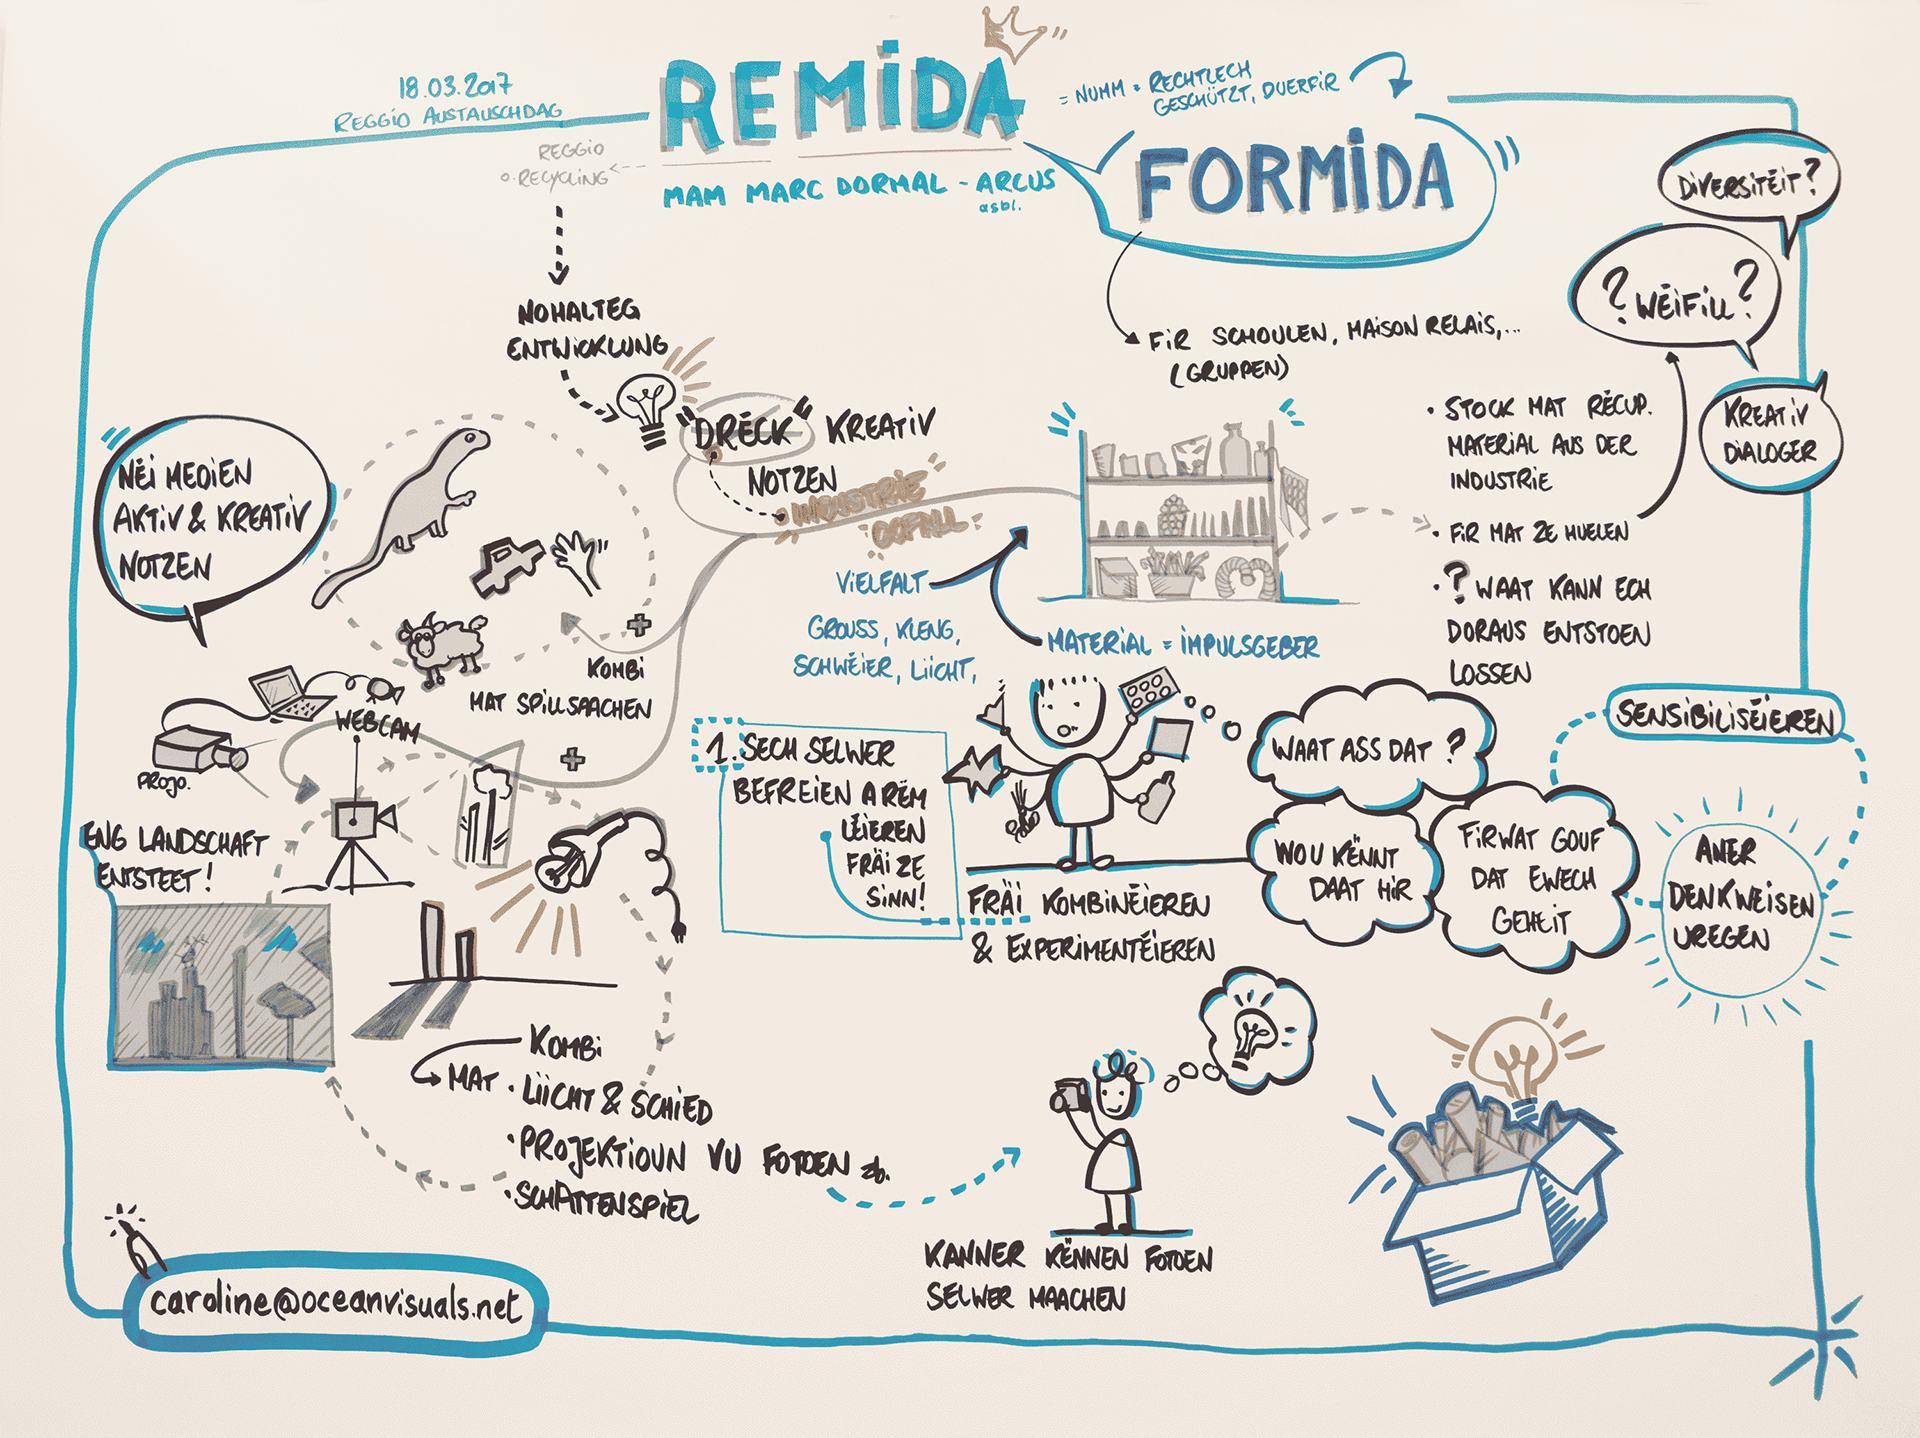 18.03.2017
REGGIO AUSTAUSCHDAG
REMIDA
MAM MARC DORMAL - ARCUS
asbl.
= NUMM = RECHTLECH
GESCHÜTZT, DUERFIR
FORMIDA
REGGIO
RECYCLING
NOHALTEG
ENTWICKLUNG
"DRECK" KREATIV
NOTZEN
INDUSTRIE
OOFALL
FIR SCHOULEN, MAISON RELAIS,...
(GRUPPEN)
DIVERSITÉIT?
? WÉIFILL?
KREATIV
DIALOGER
• STOCK MAT RÉCUP.
MATERIAL AUS DER
INDUSTRIE
• FIR MAT ZE HUELEN
• ? WAAT KANN ECH
DORAUS ENTSTOEN
LOSSEN
NÉI MEDIEN
AKTIV & KREATIV
NOTZEN
+
KOMBI
MAT SPILLSAACHEN
VIELFALT
GROUSS, KLENG,
SCHWÉIER, LIICHT,
MATERIAL = IMPULSGEBER
WEBCAM
PROJO.
+
ENG LANDSCHAFT
ENTSTEET!
1. SECH SELWER
BEFREIEN A RËM
LÉIEREN
FRÄI ZE
SINN!
FRÄI KOMBINÉIEREN
& EXPERIMENTÉIEREN
WAAT ASS DAT?
WOU KËNNT
DAAT HIR
FIRWAT GOUF
DAT EWECH
GEHEIT
SENSIBILISÉIEREN
ANER
DENKWEISEN
UREGEN
KOMBI
MAT • LIICHT & SCHIED
• PROJEKTIOUN VU FOTOEN zb.
• SCHATTENSPIEL
KANNER KËNNEN FOTOEN
SELWER MAACHEN
caroline@oceanvisuals.net